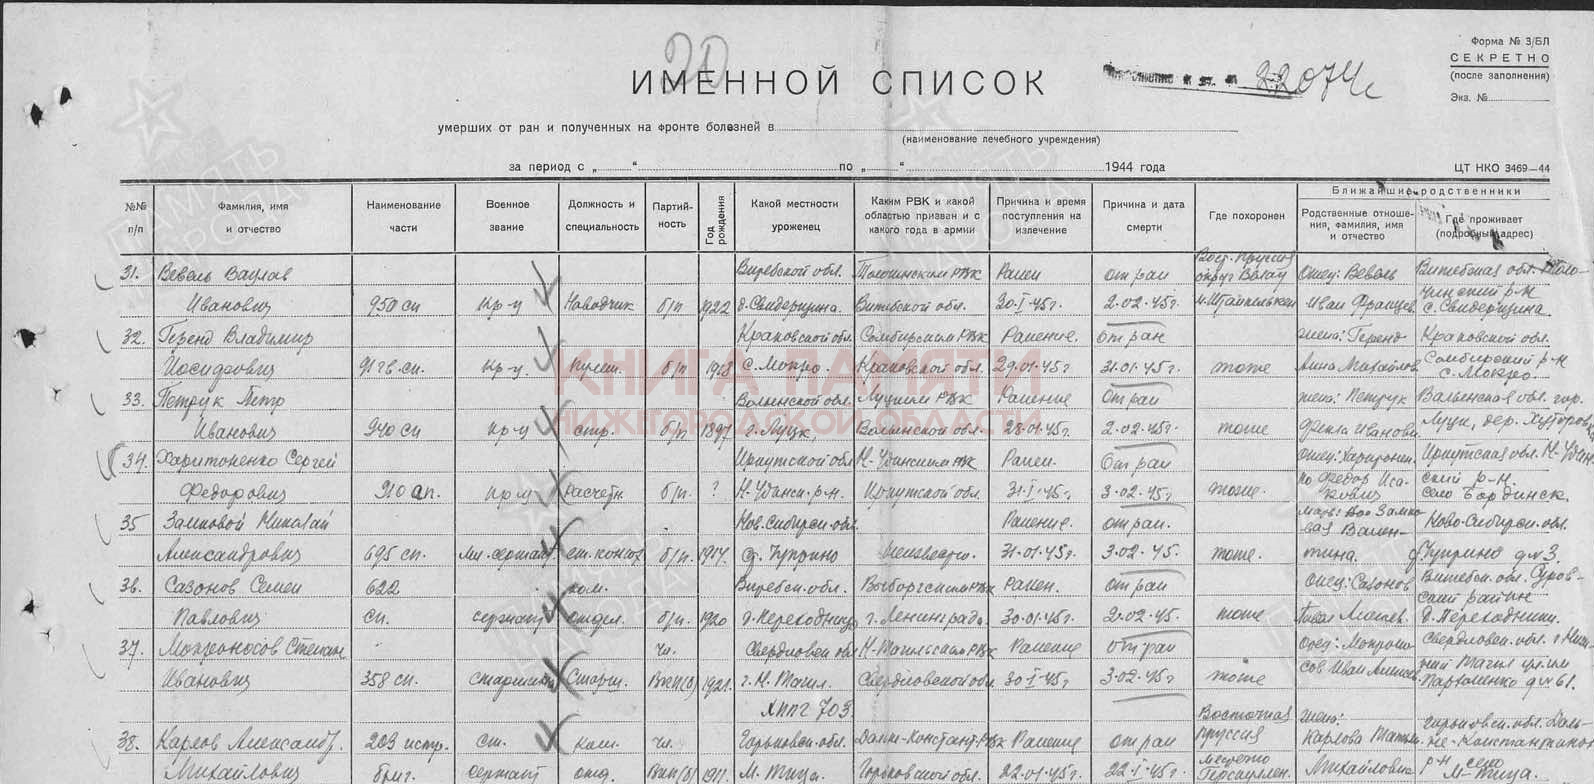 20
Форма № 3/БЛ
СЕКРЕТНО
(после заполнения)
Экз. №
ИМЕННОЙ СПИСОК
22074с
умерших от ран и полученных на фронте болезней в
(наименование лечебного учреждения)
за период с „ “ по „ “ 1944 года
ЦТ НКО 3469—44
№№ п/п
Фамилия, имя и отчество
Наименование части
Военное звание
Должность и специальность
Партийность
Год рождения
Какой местности уроженец
Каким РВК и какой областью призван и с какого года в армии
Причина и время поступления на излечение
Причина и дата смерти
Где похоронен
Ближайшие родственники
Родственные отношения, фамилия, имя и отчество
Где проживает (подробный адрес)
31. Вевель Вацлав Витебской обл. Толочинским РВК Ранен от ран Вост. Пруссия отец: Вевель Витебская обл. Толо-
Иванович 950 сп Кр-ц Наводчик б/п 1922 д. Свидерщина. Витебской обл. 30.I.45г. 2.02.45г. Иван Францев. чинский р-н с. Свидерщина
32. Геренд Владимир Краковской обл. Самбирским РВК Ранение. от ран жена: Геренд Краковской обл.
Иосифович 91 гв. сп. Кр-ц б/п с. Мокро. Краковской обл. 29.01.45г. 31.01.45г. тоже Анна Михайлов. Самбирский р-н с. Мокро.
33. Петрук Петр Волынской обл. Луцким РВК Ранение от ран жена: Петрук Волынская обл. гор.
Иванович 940 сп Кр-ц стр. б/п 1897 г. Луцк, Волынской обл. 28.01.45г. 2.02.45г. тоже Ивановн. Луцк, дер.
34. Харитоненко Сергей Иркутской обл. Н-Удинским РВК Ранен. от ран отец: Харитонен- Иркутская обл. Н-Удин-
Федорович 910 ап. Кр-ц Расчетн. б/п. ? Н-Удинск. р-н. Иркутской обл. 31.I.45г. 3.02.45г. тоже. ко Федор Иса-кович ский р-н. село
35 Замковой Николай Нов.Сибирск. обл. Ранение. от ран. мать: Замко- Ново-Сибирск. обл.
Александрович 695 сп. мл. сержант б/п. 1914. ст. Чуприно Неизвестно. 31.01.45г. 3.02.45. тоже. вая Вален-тина. Чуприно д № 3.
36. Сазонов Семен 622 ком. Витебск. обл. Выборгским РВК ранен. от ран отец: Сазонов Витебск. обл. Суров-ский район
Павлович сп. сержант отдел. б/п. 1920 г. Ленинграда 30.01.45г. 2.02.45. тоже Павел д. Переходники.
37. Мокроносов Степан чл. Свердловск обл Н-Тагильским РВК Ранение от ран Отец: Мокроно- Свердловск. обл. г. Ниж-
Иванович 358 сп. старшина Старш. ВКП(б) 1921. г. Н. Тагил. Свердловской обл. 30.I.45г 3.02.45г. тоже сов Иван Алексеев. ний Тагил ул. им Пархоменко д № 61.
ХППГ 703
38. Карлов Александр. 203 истр. ст. ком. чл. Горьковск. обл. Дальн-Констант. РВК Ранение от ран Восточная Пруссия жена: Карлова Горьковск. обл. Даль-не-Константинов
Михайлович бриг. сержант отд. ВКП(б) 1911. М. Пица. Горьковской обл. 22.01.45г. 22.I.45г. местечко Михайловн. р-н село М. Пица.
ПАМЯТЬ НАРОДА
КНИГА ПАМЯТИ
НИЖЕГОРОДСКОЙ ОБЛАСТИ